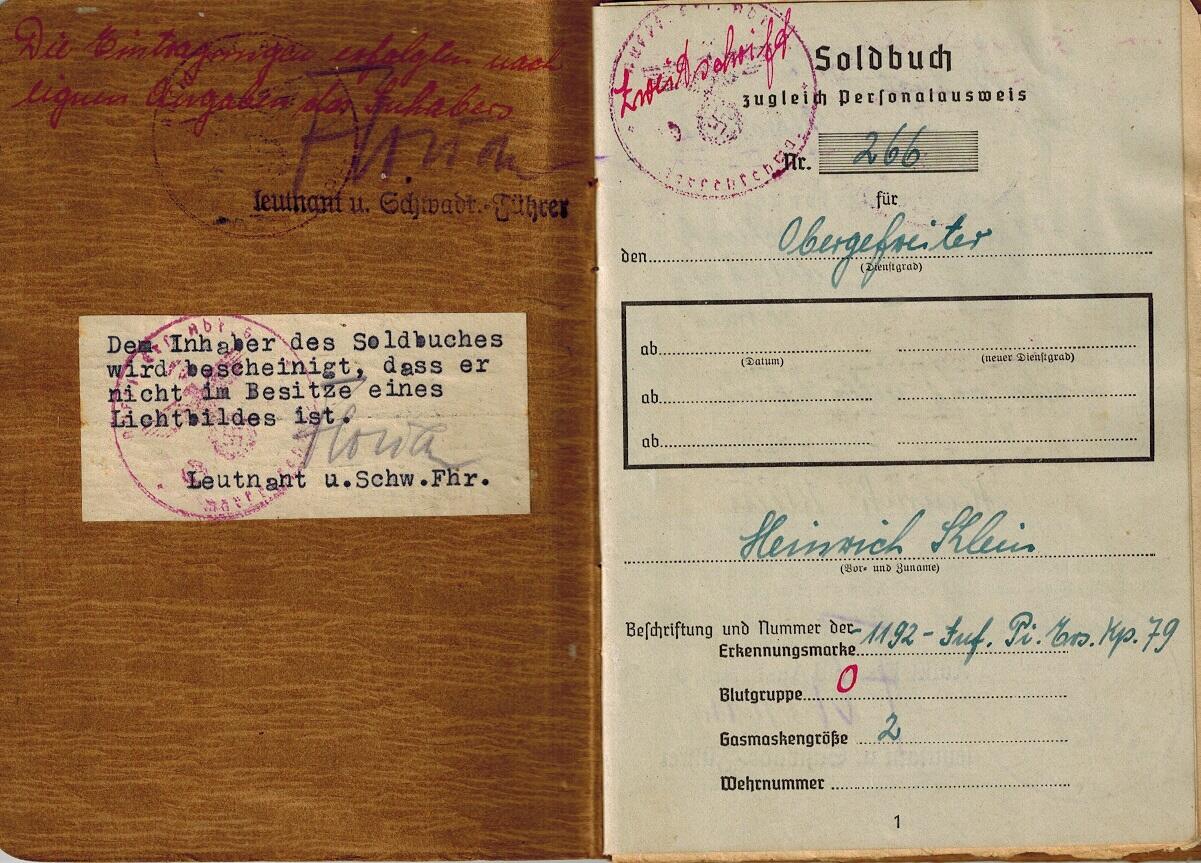 Die Eintragungen erfolgten nach
eignen Angaben des Inhabers
Leutnant u. Schwadr.-Führer
Dem Inhaber des Soldbuches
wird bescheinigt, dass er
nicht im Besitze eines
Lichtbildes ist.
Leutnant u.Schw.Fhr.
Zweitschrift
Soldbuch
zugleich Personalausweis
Nr. 266
für
den Obergefreiter
(Dienstgrad)
ab
(Datum) (neuer Dienstgrad)
ab
ab
Heinrich Klein
(Vor- und Zuname)
Beschriftung und Nummer der -1192- Inf. Pi. Ers. Kp. 79
Erkennungsmarke
Blutgruppe O
Gasmaskengröße 2
Wehrnummer
1